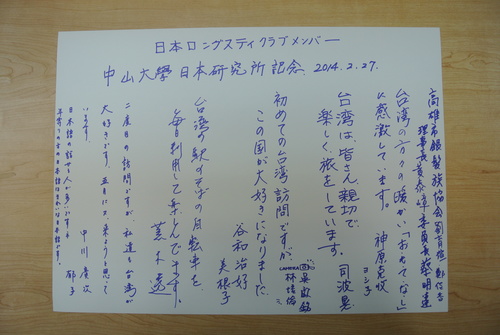 日本ロングスティクラブメンバー
中山大學日本研究所記念. 2014.2.27.
高雄市銀髮族協會
理事長黃泰嶂
台湾の方々の暖かい「おもてなし」
に感激しています。 神原克收
ヨシ子
台湾は、皆さん親切で
楽しく旅をしています。 司波晃
初めての台湾訪問ですが、
この国が大好きになりました
谷和治好
美根子
台湾の駅のそばの自転車を
毎日利用して楽しんでます。
二度目の訪問ですが、私達も台湾が
大好きです。五月にも来ようと思って
います。 中川
郁子
日本語の話せる人が多いですネ